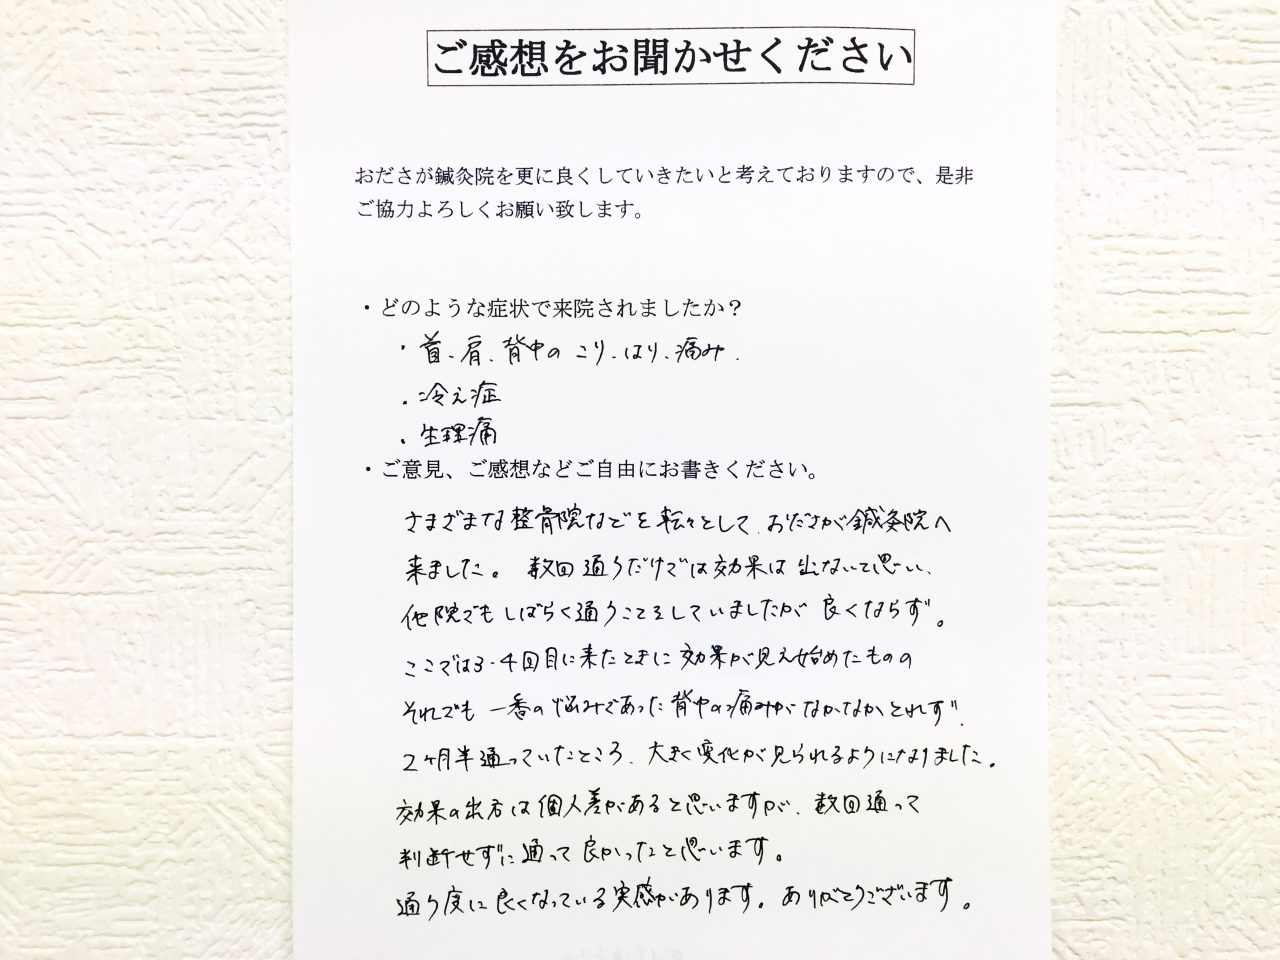 ご感想をお聞かせください
おださが鍼灸院を更に良くしていきたいと考えておりますので、是非
ご協力よろしくお願い致します。
・どのような症状で来院されましたか？
・首、肩、背中の こり、はり、痛み.
・冷え症
・生理痛
・ご意見、ご感想などご自由にお書きください。
さまざまな整骨院などを転々として、おださが鍼灸院へ
来ました。 数回通うだけでは効果は出ないと思い、
他院でもしばらく通うことをしていましたが 良くならず。
ここでは3-4回目に来たときに 効果が見え始めたものの
それでも 一番の悩みであった背中の痛みが なかなかとれず、
2ヶ月半通っていたところ、大きく変化が見られるようになりました。
効果の出方は個人差があると思いますが、数回通って
判断せずに通って良かったと思います。
通う度に良くなっている実感があります。ありがとうございます。